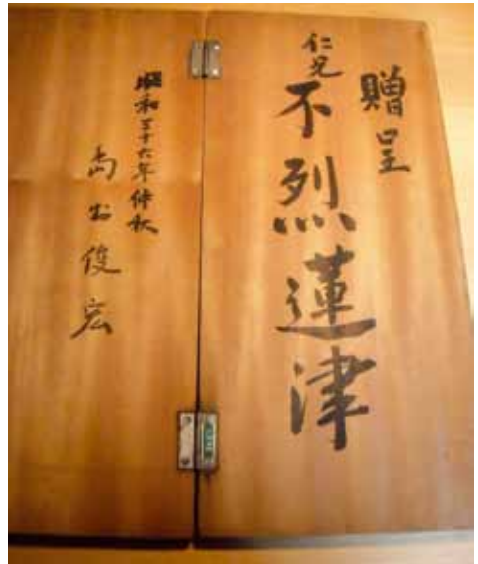 贈呈
仁兄
不烈蓮津
昭和三十六年仲秋
俊宏